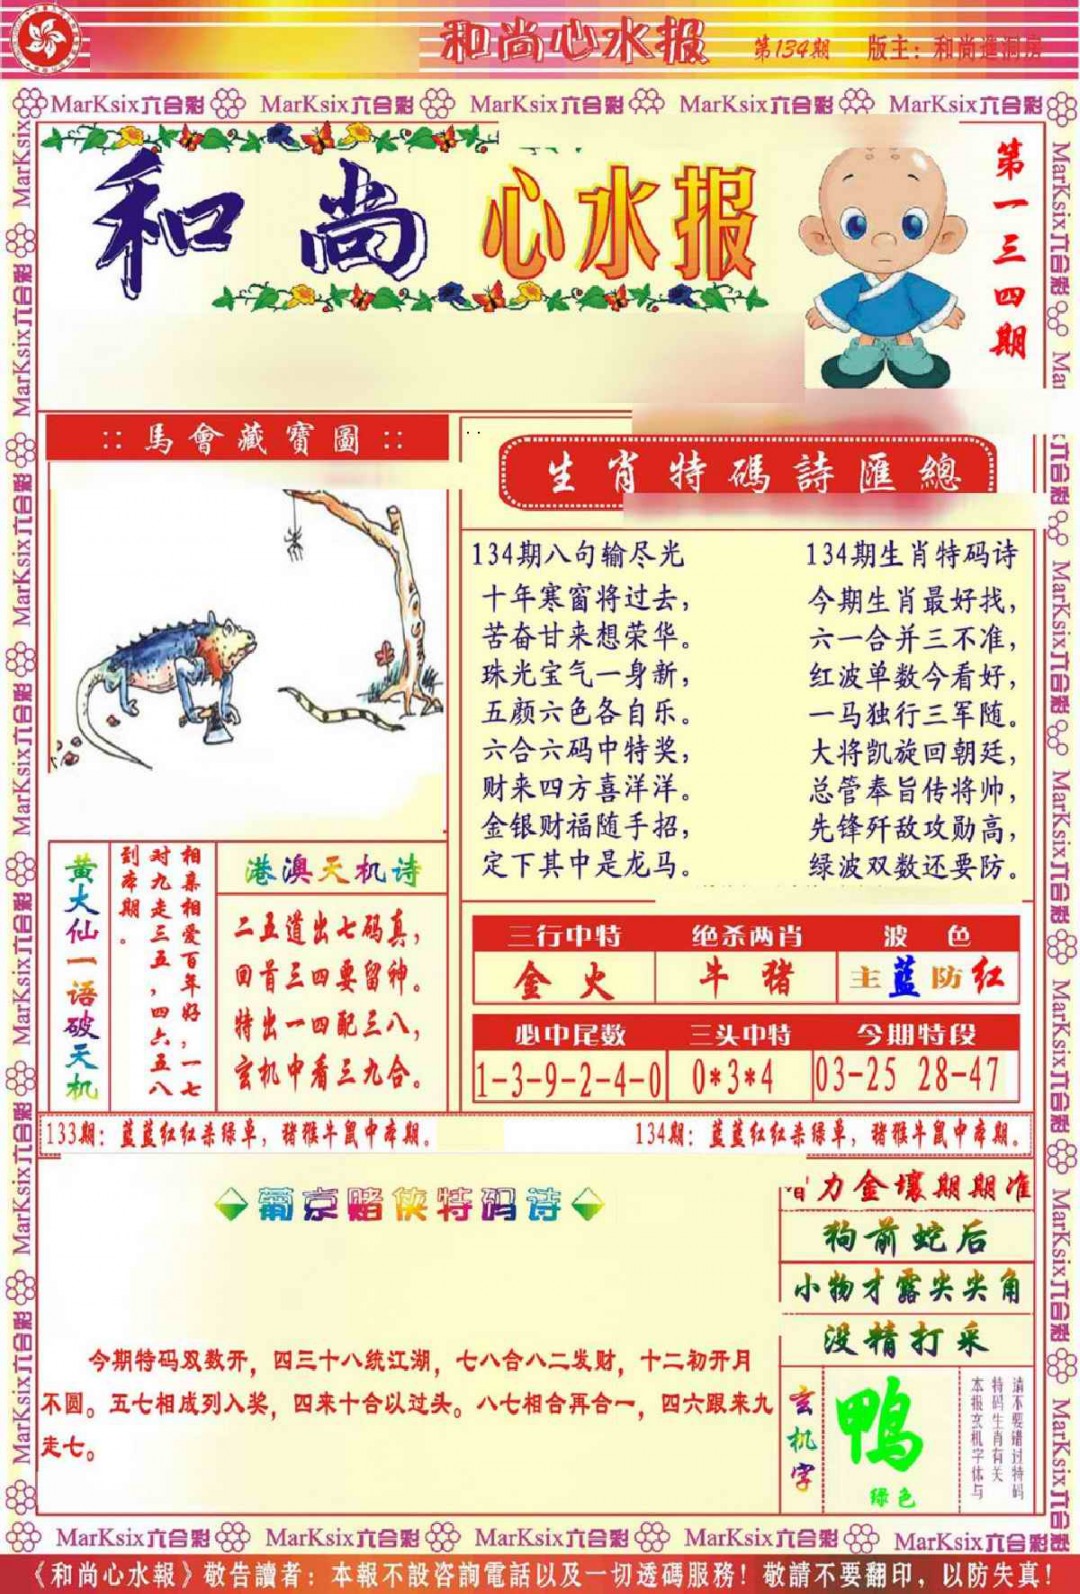 和尚心水报 第134期 版主：和尚進洞房
MarKsix六合彩 MarKsix六合彩 MarKsix六合彩 MarKsix六合彩 MarKsix六合彩
和尚心水报
第一三四期
::馬會藏寶圖::
生肖特碼詩匯總
134期八句输尽光
十年寒窗将过去，
苦奋甘来想荣华。
珠光宝气一身新，
五颜六色各自乐。
六合六码中特奖，
财来四方喜洋洋。
金银财福随手招，
定下其中是龙马。
134期生肖特码诗
今期生肖最好找，
六一合并三不准，
红波单数今看好，
一马独行三军随。
大将凯旋回朝廷，
总管奉旨传将帅，
先锋歼敌攻勋高，
绿波双数还要防。
黄大仙一语破天机
相亲相爱百年好，一七
对九走三五，四六五八
到本期。
港澳天机诗
二五道出七码真，
回首三四要留神。
特出一四配三八，
玄机中看三九合。
三行中特 绝杀两肖 波色
金火 牛猪 主蓝防红
必中尾数 三头中特 今期特段
1-3-9-2-4-0 0*3*4 03-25 28-47
133期：蓝蓝红红杀绿单，猪猴牛鼠中本期。
134期：蓝蓝红红杀绿单，猪猴牛鼠中本期。
葡京赌侠特码诗
今期特码双数开，四三十八统江湖，七八合八二发财，十二初开月
不圆。五七相成列入奖，四来十合以过头。八七相合再合一，四六跟来九
走七。
力金壤期期准
狗前蛇后
小物才露尖尖角
没精打采
玄机字
鸭
绿色
请不要错过特码
特码生肖有关
本报玄机字体与
MarKsix六合彩 MarKsix六合彩 MarKsix六合彩 MarKsix六合彩 MarKsix六合彩
《和尚心水報》敬告讀者：本報不設咨詢電話以及一切透碼服務！敬請不要翻印，以防失真！